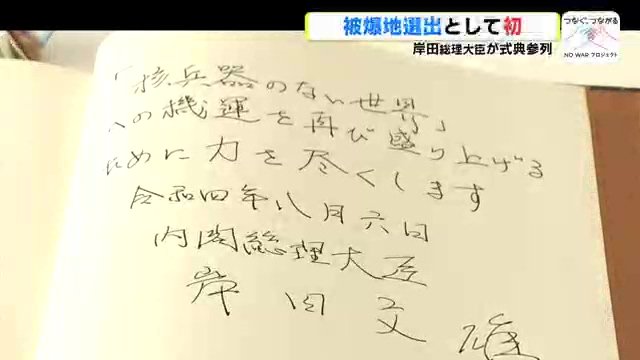 被爆地選出として初
岸田総理大臣が式典参列
つなぐ、つながる
NO WAR プロジェクト
「核兵器のない世界」
への機運を再び盛り上げる
ために力を尽くします
令和四年八月六日
内閣総理大臣
岸田文雄